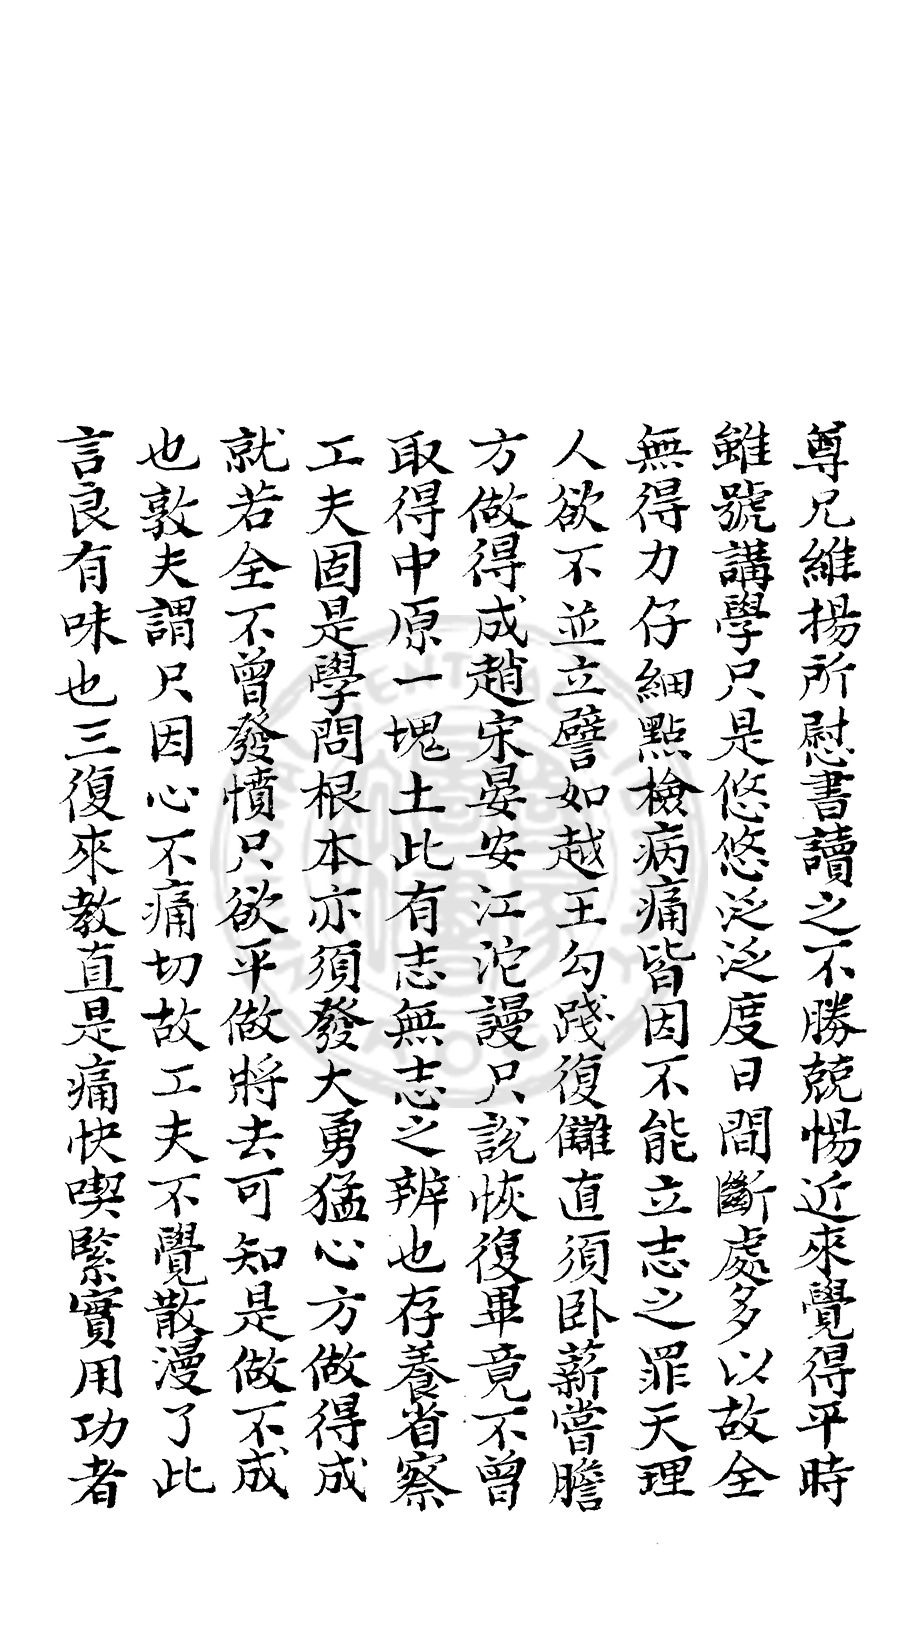 尊兄維揚所慰書讀之不勝兢惕近來覺得平時
雖號講學只是悠悠泛泛度日間斷處多以故全
無得力仔細點檢病痛皆因不能立志之罪天理
人欲不並立譬如越王勾踐復讎直須卧薪嘗膽
方做得成趙宋晏安江沱謾只說恢復畢竟不曾
取得中原一塊土此有志無志之辨也存養省察
工夫固是學問根本亦須發大勇猛心方做得成
就若全不曾發憤只欲平做將去可知是做不成
也敦夫謂只因心不痛切故工夫不覺散漫了此
言良有味也三復來教直是痛快喫緊實用功者